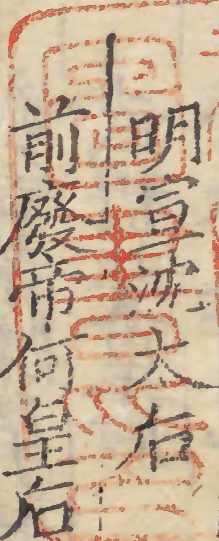 明宣沈太后
前廢帝何皇后